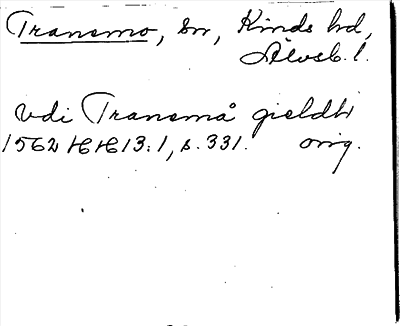 Tranemo, sn, Kinds hd,
Älvsb. l.
vdi Tranemå gieldh
1562 HH 13:1, s. 331. orig.